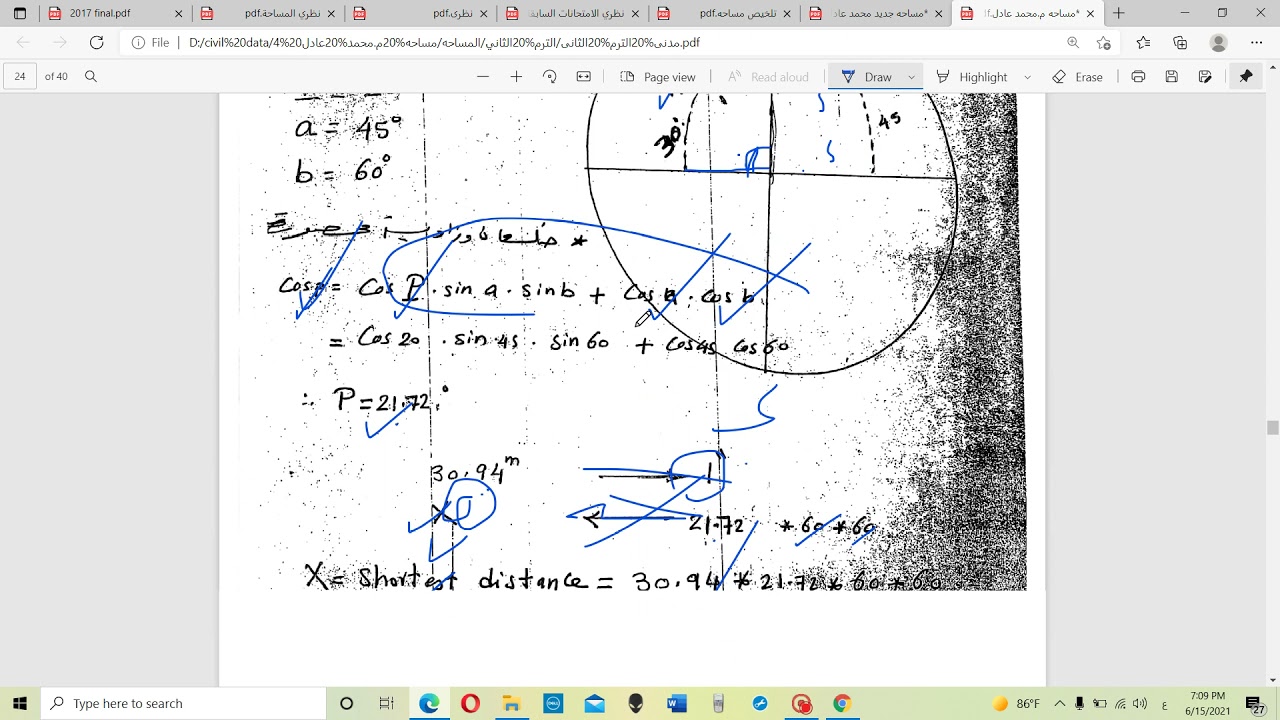 2017 final.pdf
نظري المساحة.pdf
نظري.pdf
نظري الامتحانات السابقة
تلخيص مساحه.pdf
*مساحه جديد محمد عاد
*مساحه م.محمد عادل.
File D:/civil%20data/4%20مدنى%20الترم%20الثانى/الترم%20الثاني/المساحه/مساحه%20م.محمد%20عادل.pdf
24 of 40 Page view Read aloud Draw Highlight Erase
a = 45°
b = 60°
30°
45
Cos p = Cos P . sin a . sin b + Cos a . Cos b
= Cos 20 . sin 45 . sin 60 + Cos 45 Cos 60
∴ P = 21.72°
30.94 m 1"
X 21.72 * 60 * 60
X = Shortest distance = 30.94 * 21.72 * 60 * 60
Type here to search
86°F
ع
7:09 PM
6/15/2021
27